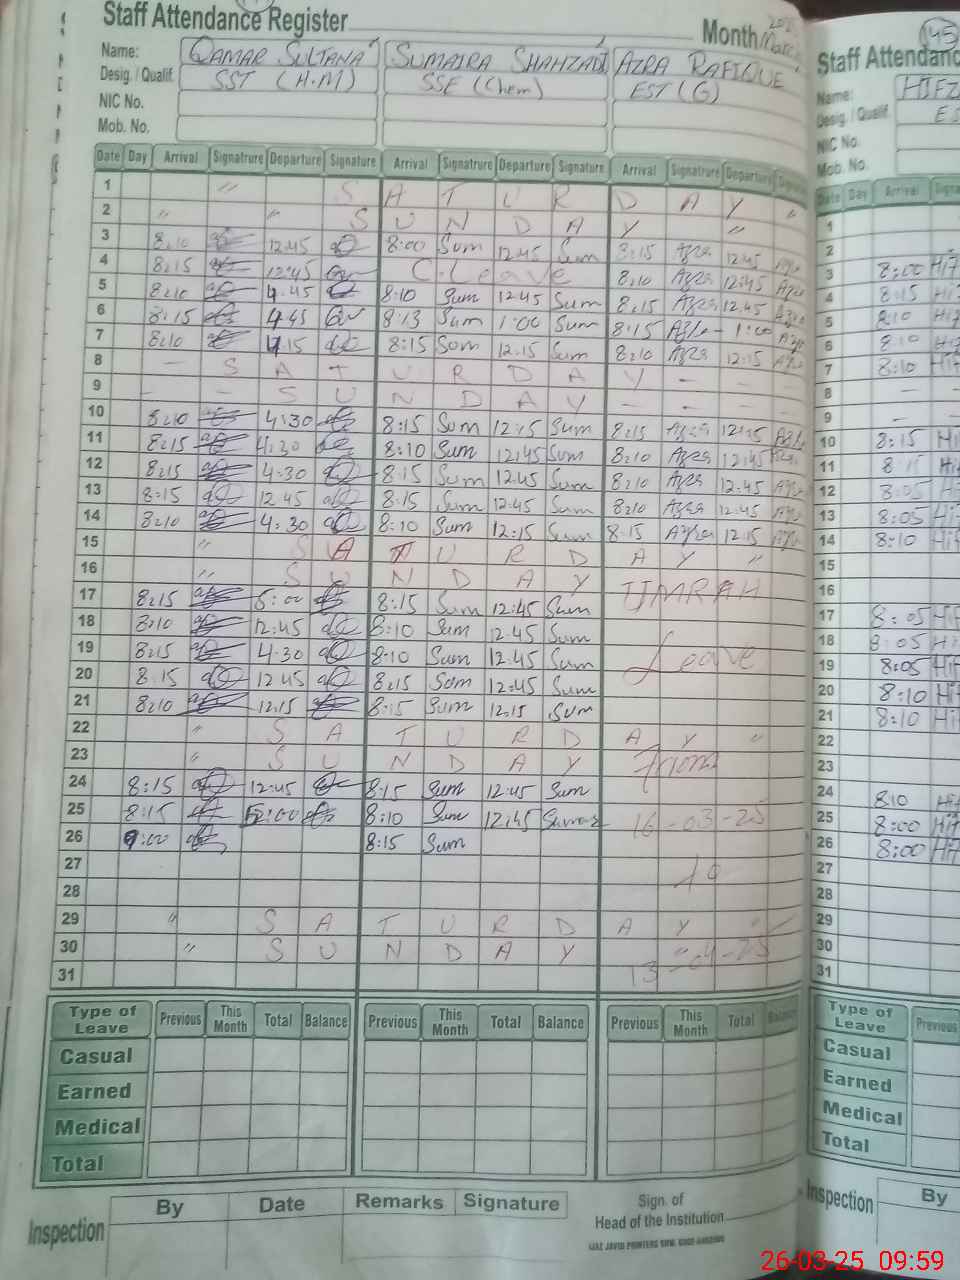 Staff Attendance Register Month March 2025
Name: QAMAR SULTANA SUMAIRA SHAHZADI AZRA RAFIQUE
Desig. / Qualif. SST (H.M) SSE (Chem) EST (G)
NIC No.
Mob. No.
Date Day Arrival Signatrure Departure Signature Arrival Signatrure Departure Signature Arrival Signatrure Departure Signature
1 " S A T U R D A Y "
2 " " S U N D A Y "
3 8:10 12:45 8:00 Sum 12:45 Sum 8:15 Azra 12:45 Azra
4 8:15 12:45 C. Leave 8:10 Azra 12:45 Azra
5 8:10 4:45 8:10 Sum 12:45 Sum 8:15 Azra 12:45 Azra
6 8:15 4:45 8:13 Sum 1:00 Sum 8:15 Azra 1:00 Azra
7 8:10 4:15 8:15 Sum 12:15 Sum 8:10 Azra 12:15 Azra
8 – S A T U R D A Y – – –
9 - – S U N D A Y – – –
10 8:10 4:30 8:15 Sum 12:15 Sum 8:15 Azra 12:15 Azra
11 8:15 4:30 8:10 Sum 12:45 Sum 8:10 Azra 12:45 Azra
12 8:15 4:30 8:15 Sum 12:45 Sum 8:10 Azra 12:45 Azra
13 8:15 12:45 8:15 Sum 12:45 Sum 8:10 Azra 12:45 Azra
14 8:10 4:30 8:10 Sum 12:15 Sum 8:15 Azra 12:15 Azra
15 " S A T U R D A Y "
16 " S U N D A Y UMRAH
17 8:15 5:00 8:15 Sum 12:45 Sum
18 8:10 12:45 8:10 Sum 12:45 Sum
19 8:15 4:30 8:10 Sum 12:45 Sum Leave
20 8:15 12:45 8:15 Sum 12:45 Sum
21 8:10 12:15 8:15 Sum 12:15 Sum
22 " S A T U R D A Y "
23 " S U N D A Y From
24 8:15 12:45 8:15 Sum 12:45 Sum
25 8:15 5:00 8:10 Sum 12:45 16-03-25
26 9:00 8:15 Sum
27 to
28
29 " S A T U R D A Y "
30 " S U N D A Y "
31 13-04-25
Type of Leave Previous This Month Total Balance Previous This Month Total Balance Previous This Month Total Balance
Casual
Earned
Medical
Total
Inspection By Date Remarks Signature Sign. of Head of the Institution
45
Staff Attendanc
Name: HIFZ
Desig. / Qualif.
NIC No.
Mob. No.
Date Day Arrival Signa
1
2
3 8:00 Hif
4 8:15 Hi
5 8:10 Hif
6 8:10 Hif
7 8:10 Hif
8 –
9 –
10 8:15 Hi
11 Hi
12 8:05 Hi
13 8:05 Hif
14 8:10 Hif
15
16
17 8:05 Hif
18 8:05 Hi
19 8:05 Hif
20 8:10 Hif
21 8:10 Hif
22
23
24 8:10 Hif
25 8:00 Hif
26 8:00 Hif
27
28
29
30
31
Type of Leave Previous
Casual
Earned
Medical
Total
Inspection By
26-03-25 09:59